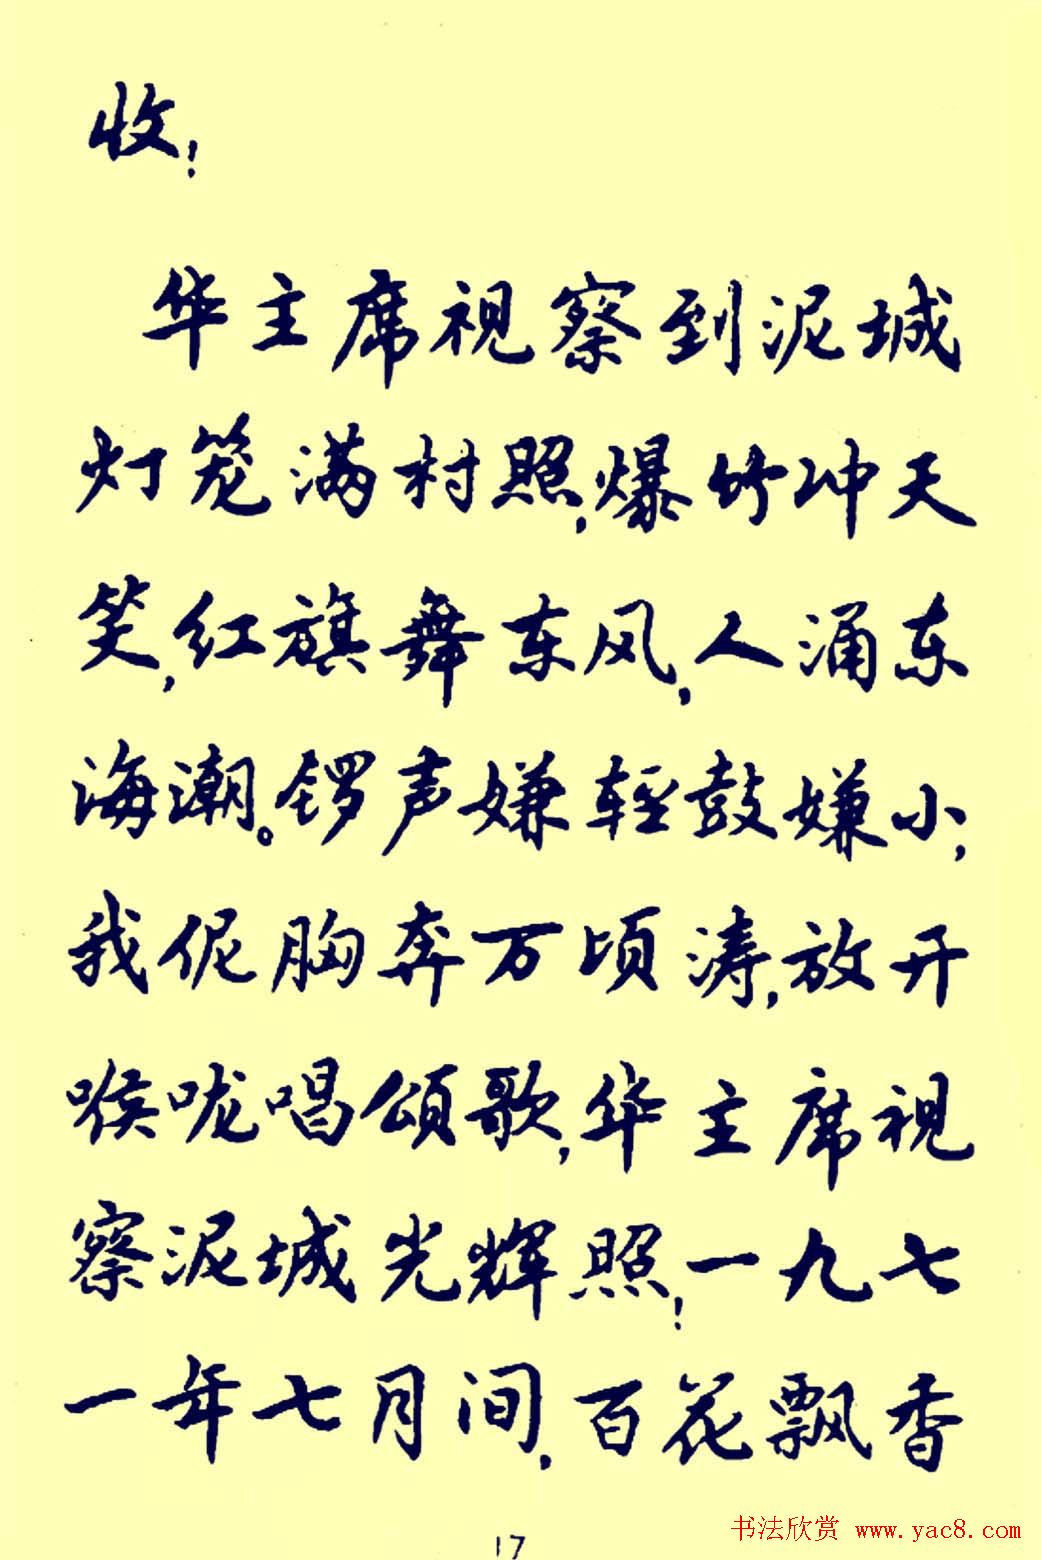 收!
华主席视察到泥城
灯笼满村照,爆竹冲天
笑,红旗舞东风,人涌东
海潮。锣声嫌轻鼓嫌小,
我伲胸奔万顷涛,放开
喉咙唱颂歌,华主席视
察泥城光辉照!一九七
一年七月间,百花飘香
17
书法欣赏 www.yac8.com